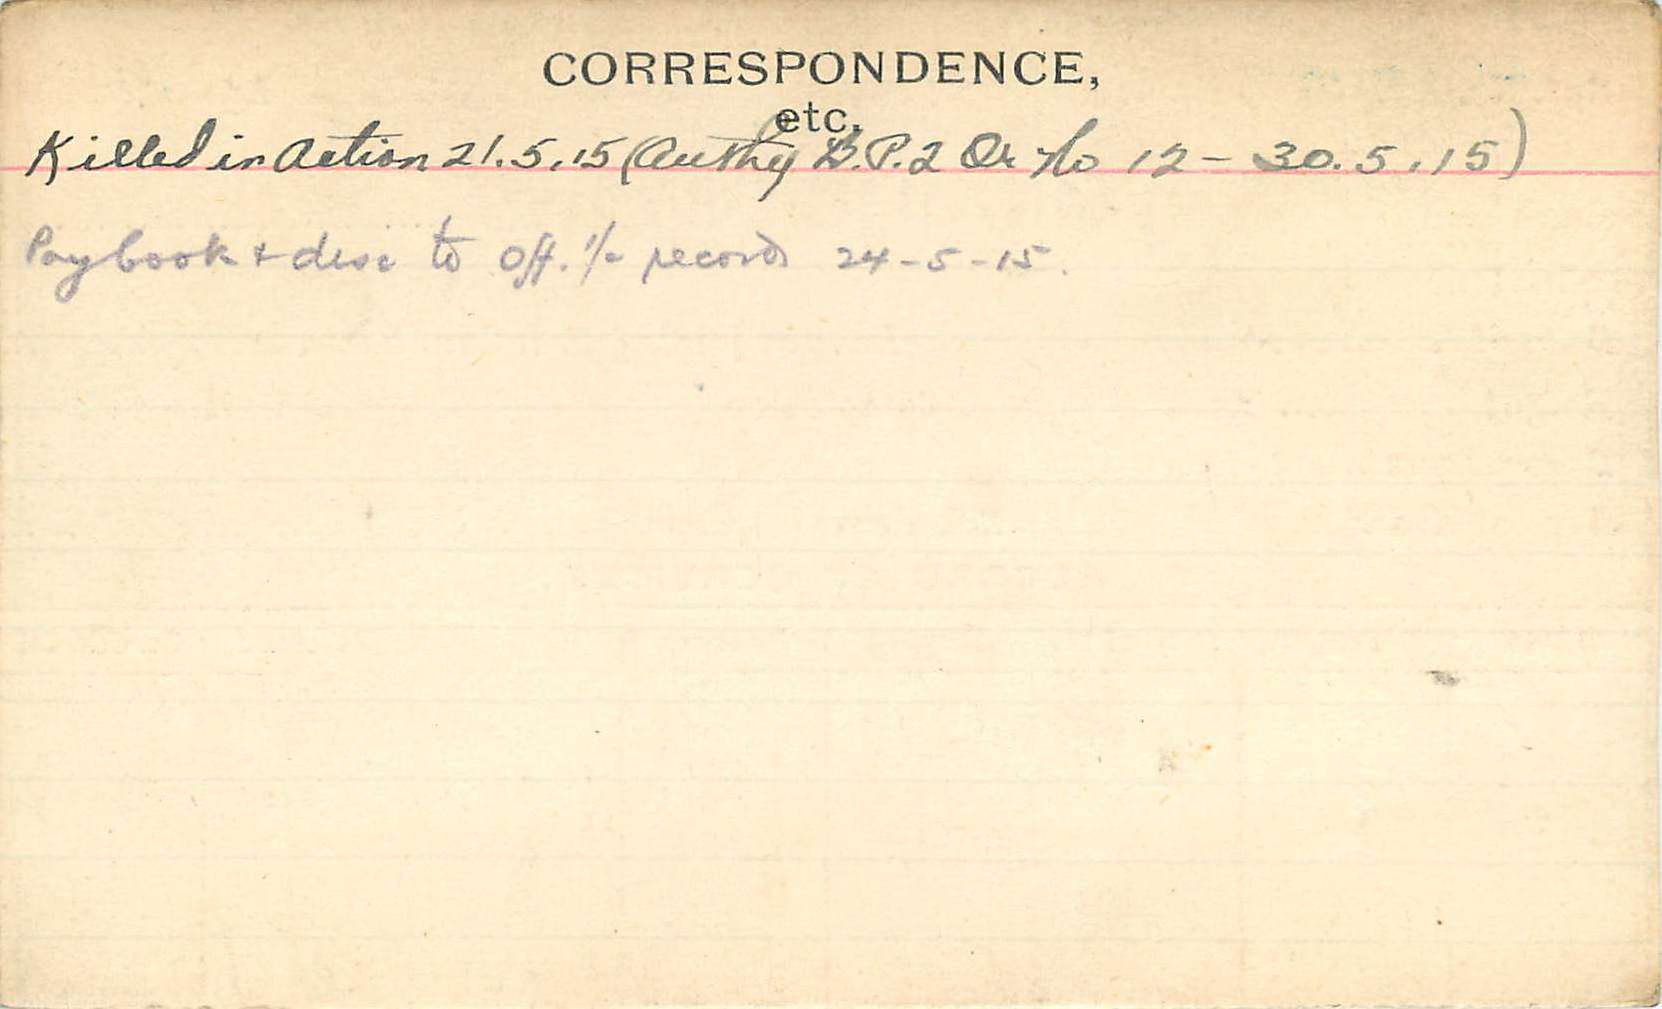 CORRESPONDENCE,
etc.
Killed in Action 21.5.15 (Authy B.P.2 Or No 12 - 30.5.15)
Paybook + disc to Off. i/c records 24-5-15.